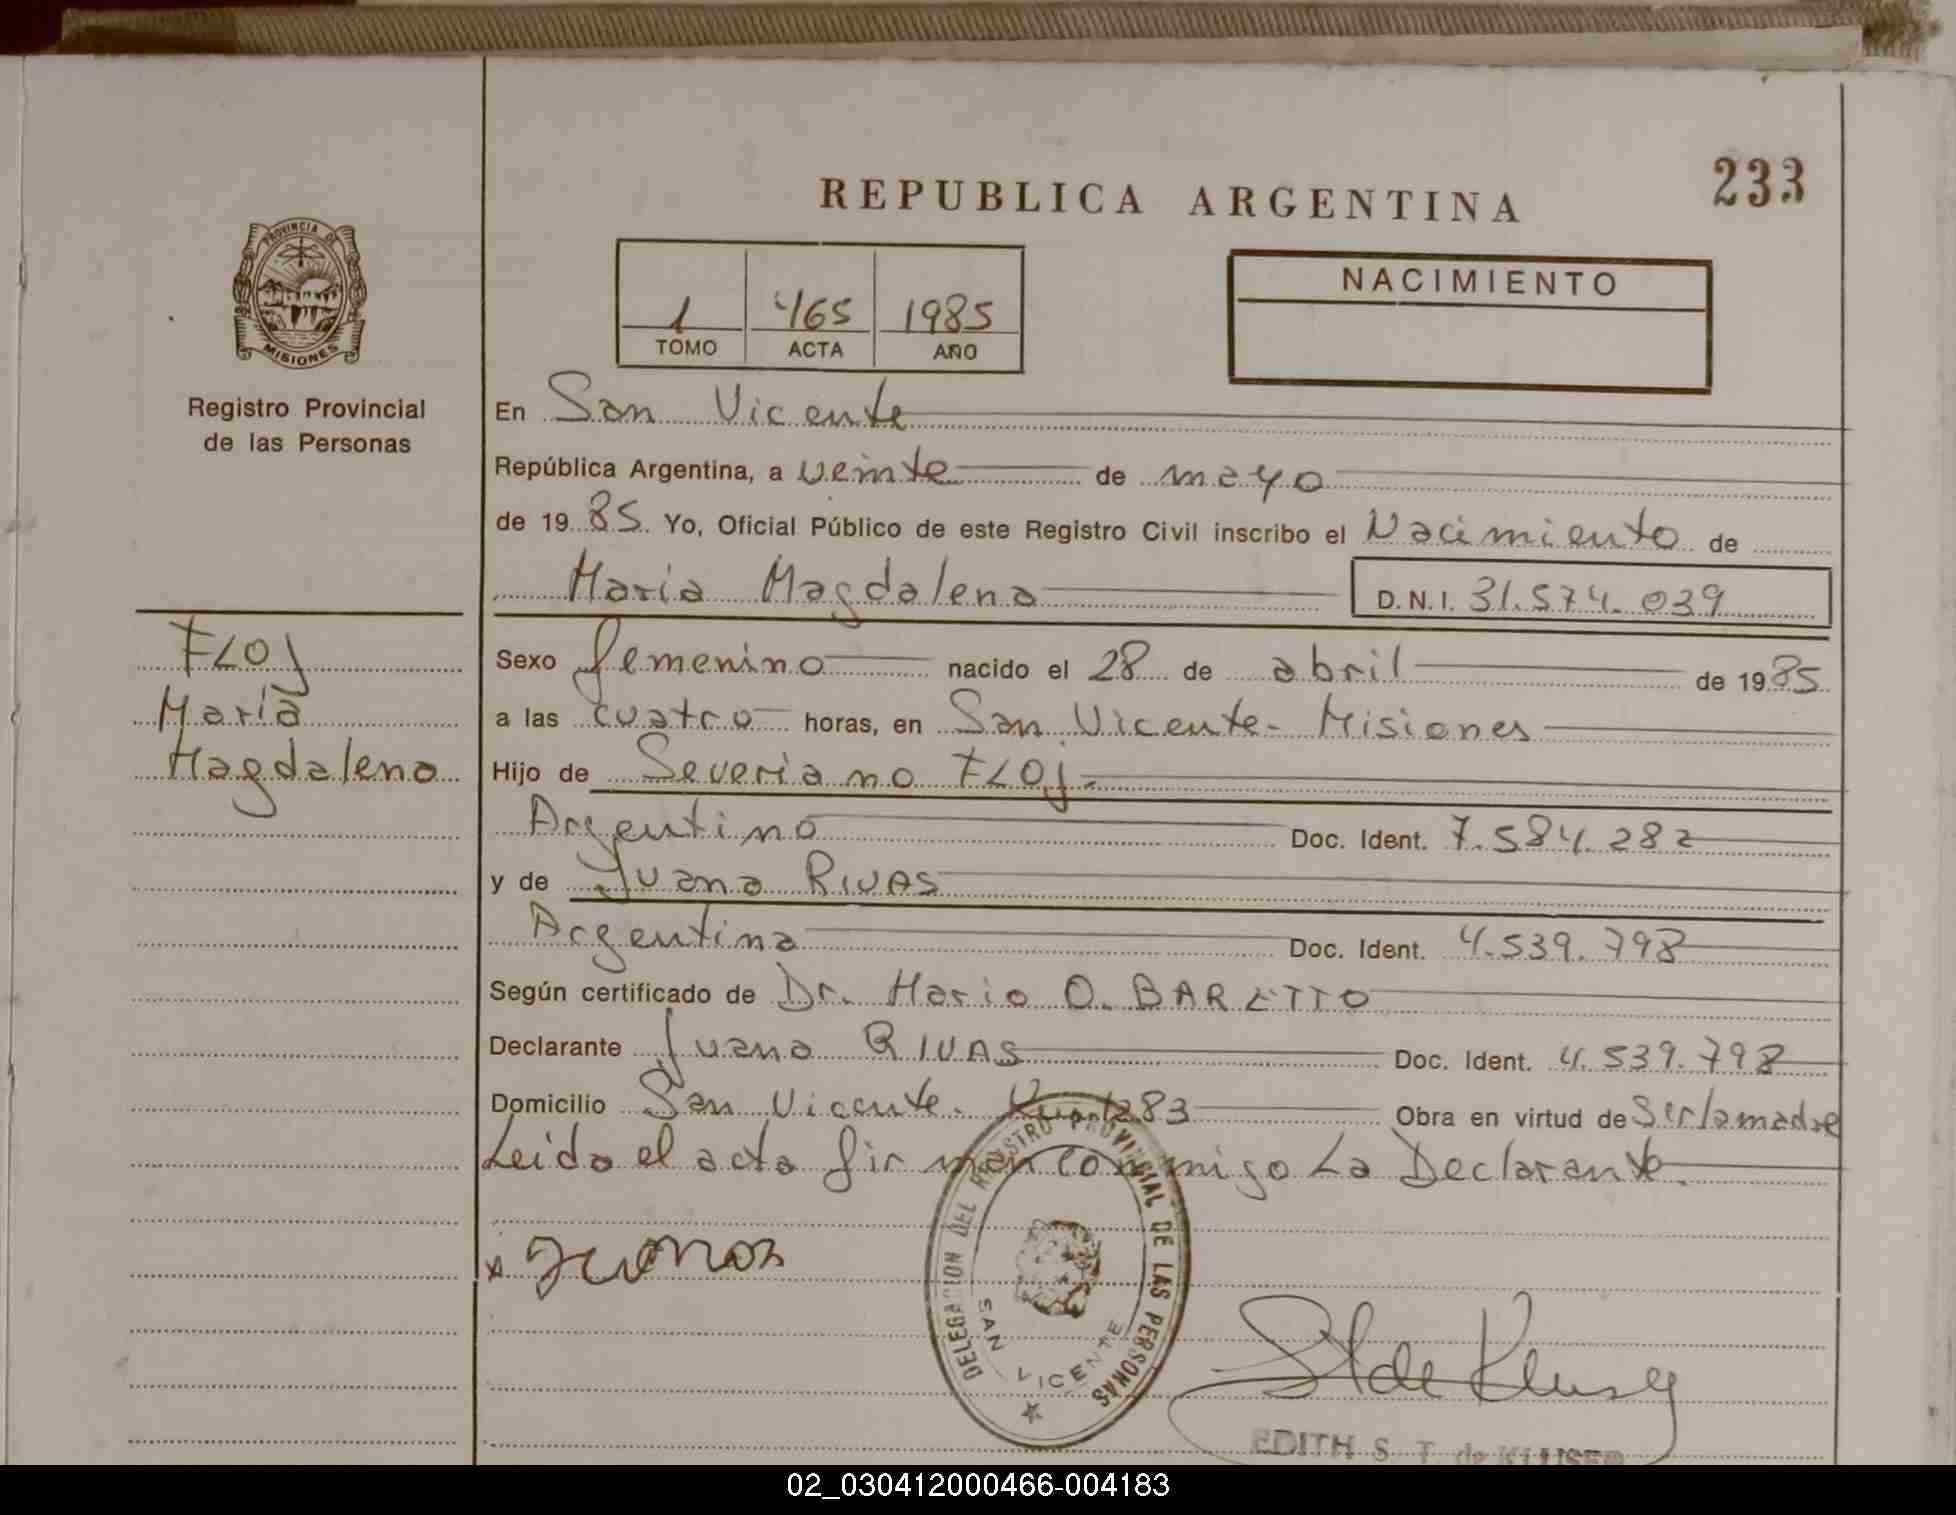 233
REPUBLICA ARGENTINA
PROVINCIA DE
MISIONES
Registro Provincial
de las Personas
1 465 1985
TOMO ACTA AÑO
NACIMIENTO
En San Vicente
República Argentina, a veinte de mayo
de 1985. Yo, Oficial Público de este Registro Civil inscribo el Nacimiento de
Maria Magdalena D.N.I. 31.574.039
FLOJ
María
Magdalena
Sexo femenino nacido el 28 de abril de 1985
a las cuatro horas, en San Vicente- Misiones
Hijo de Severiano FLOJ.
Argentino Doc. Ident. 7.584.282
y de Juana RIVAS
Argentina Doc. Ident. 4.539.798
Según certificado de Dr. Mario O. BARETTO
Declarante Juana RIVAS Doc. Ident. 4.539.798
Domicilio San Vicente. 1283 Obra en virtud de Ser la madre
Leida el acta firman conmigo La Declarante.
DELEGACION DEL REGISTRO PROVINCIAL DE LAS PERSONAS
SAN VICENTE
EDITH S. T. de KLUSER
02_030412000466-004183